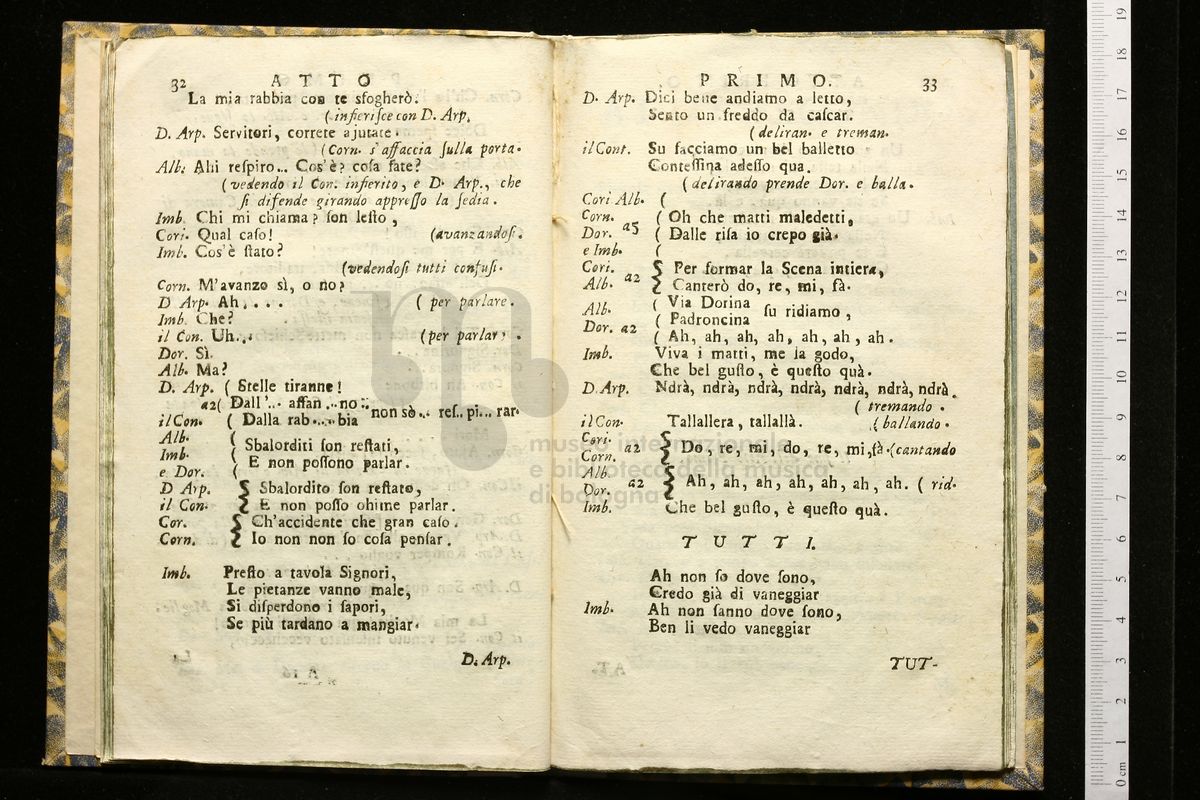 32 ATTO
La mia rabbia con te sfogherò.
( infierisce con D. Arp.
D. Arp. Servitori, correte ajutate.
( Corn. s'affaccia sulla porta.
Alb. Ahi respiro... Cos'è? cosa fate?
( vedendo il Con. infierito, e D. Arp., che
si difende girando appresso la sedia.
Imb. Chi mi chiama? son lesto,
Cori. Qual caso! (avanzandosi.
Imb. Cos'è stato?
(vedendosi tutti confusi.
Corn. M'avanzo sì, o no?
D Arp. Ah.... ( per parlare.
Imb. Che?
il Con. Uh... (per parlar
Dor. Sì.
Alb. Ma?
D. Arp. ( Stelle tiranne!
a2 ( Dall'... affan...no
il Con. ( Dalla rab...bia non sò... res.. pi... rar.
Alb. (
Imb. ( Sbalorditi son restati,
e Dor. ( E non possono parlar.
D Arp. Sbalordito son restato,
il Con. E non posso ohime parlar.
Cor. Ch'accidente che gran caso.
Corn. Io non non so cosa pensar.
Imb. Presto a tavola Signori,
Le pietanze vanno male,
Si disperdono i sapori,
Se più tardano a mangiar.
D. Arp.
PRIMO. 33
D. Arp. Dici bene andiamo a letto,
Sento un freddo da cascar.
( deliran. e treman.
il Cont. Su facciamo un bel balletto
Contessina adesso qua.
( delirando prende Dor. e balla.
Cori Alb. (
Corn. ( Oh che matti maledetti,
Dor. a5 ( Dalle risa io crepo già.
e Imb. (
Cori. Per formar la Scena intiera,
Alb. a2 Canterò do, re, mi, fà.
Alb. ( Via Dorina
Dor. a2 ( Padroncina su ridiamo,
( Ah, ah, ah, ah, ah, ah, ah.
Imb. Viva i matti, me la godo,
Che bel gusto, è questo quà.
D. Arp. Ndrà, ndrà, ndrà, ndrà, ndrà, ndrà, ndrà.
( tremando.
il Con. Tallallera, tallallà. (ballando.
Cori.
Corn. a2 Do, re, mi, do, re, mi, fà. (cantando
Alb.
Dor. a2 Ah, ah, ah, ah, ah, ah, ah. ( rid.
Imb. Che bel gusto, è questo quà.
TUTTI.
Ah non so dove sono,
Credo già di vaneggiar
Imb. Ah non sanno dove sono,
Ben li vedo vaneggiar
TUT-
museo internazionale
e biblioteca della musica
di bologna
0 cm 1 2 3 4 5 6 7 8 9 10 11 12 13 14 15 16 17 18 19